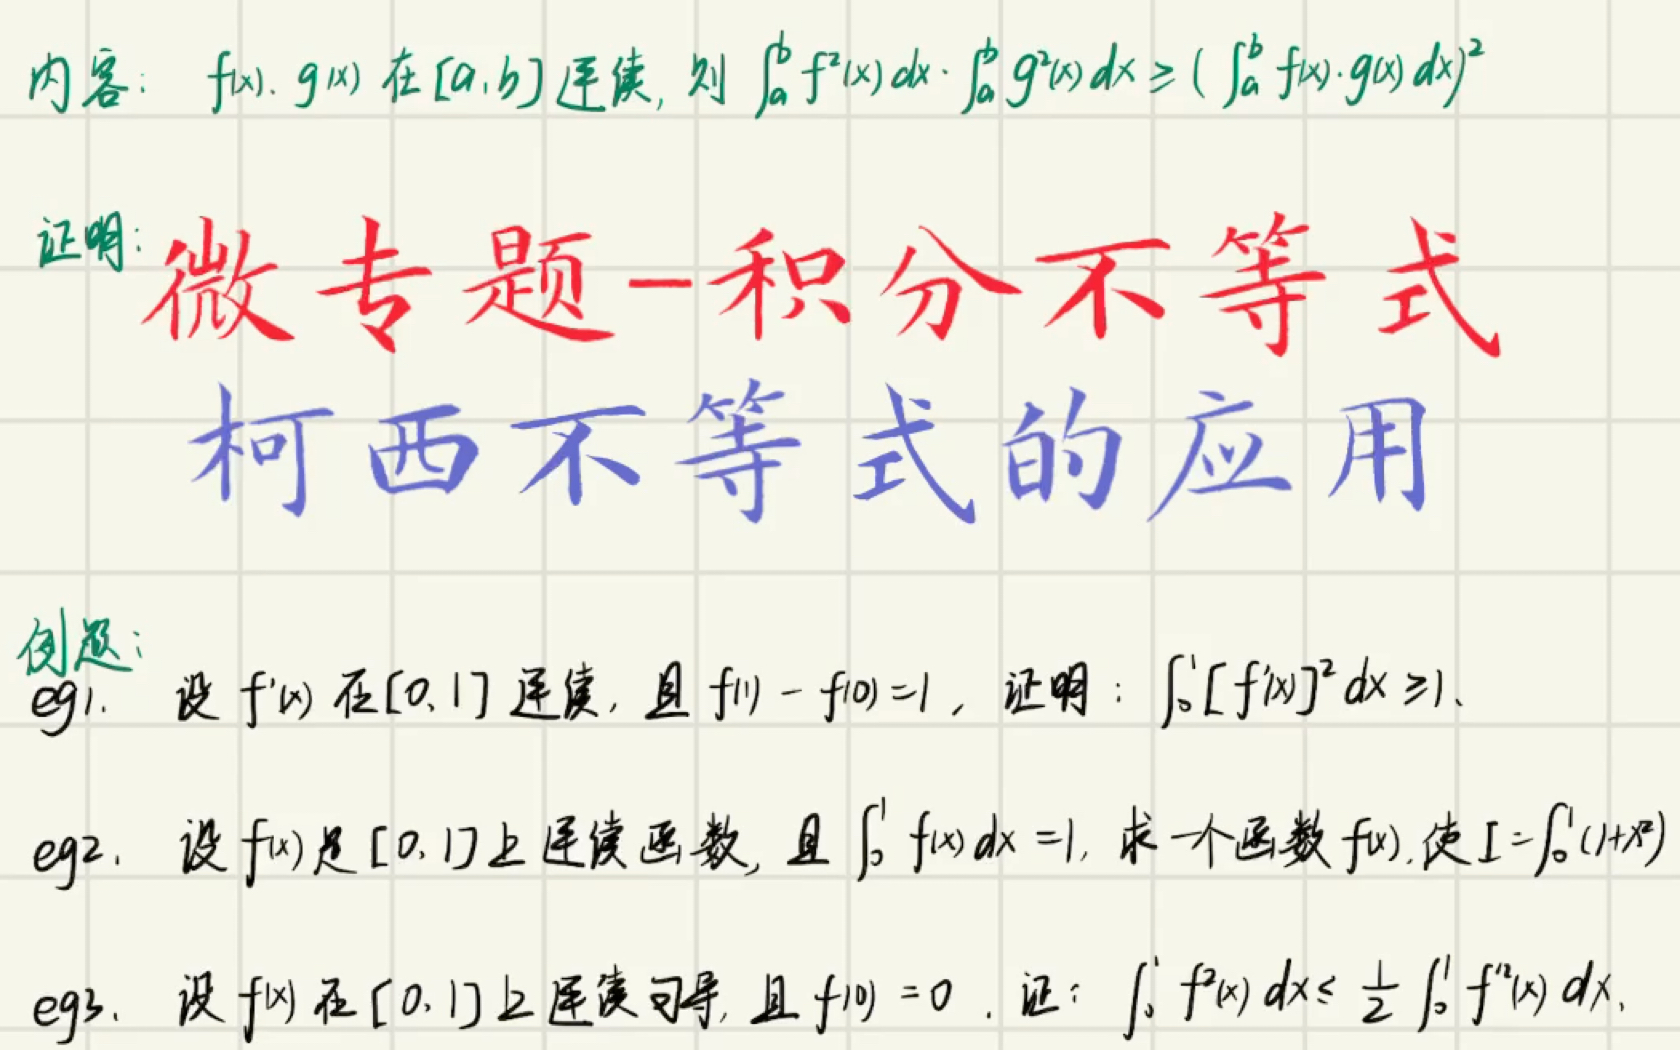 内容: f(x). g(x) 在[a,b]连续, 则 ∫ₐᵇ f²(x) dx · ∫ₐᵇ g²(x) dx ≥ ( ∫ₐᵇ f(x)·g(x) dx)²
证明:
微专题-积分不等式
柯西不等式的应用
例题:
eg1. 设 f'(x) 在[0,1] 连续, 且 f(1) - f(0) = 1, 证明: ∫₀¹ [f'(x)]² dx ≥ 1.
eg2. 设 f(x) 是[0,1]上连续函数, 且 ∫₀¹ f(x) dx = 1, 求一个函数 f(x), 使 I = ∫₀¹ (1+x²)
eg3. 设 f(x) 在[0,1]上连续可导, 且 f(0) = 0. 证: ∫₀¹ f²(x) dx ≤ 1/2 ∫₀¹ f'²(x) dx.